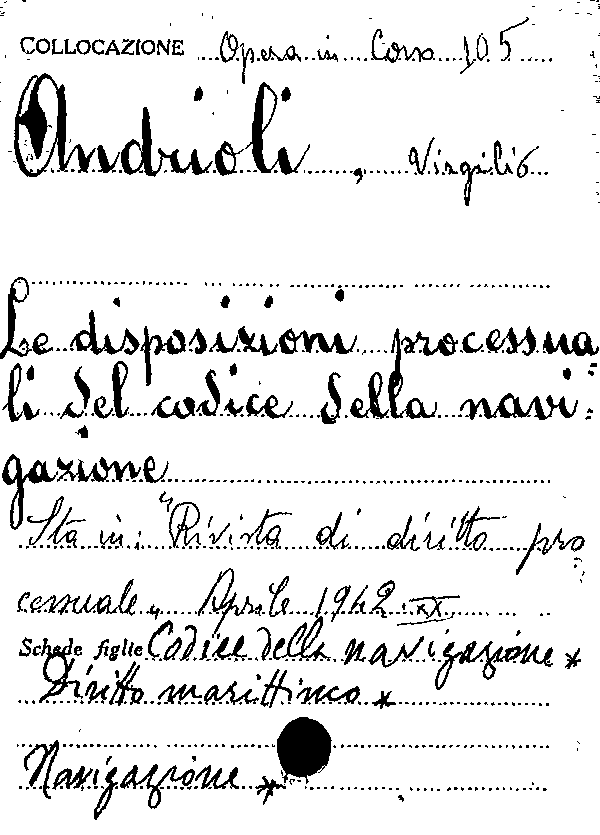 COLLOCAZIONE Opera in Corso 105
Andrioli, Virgilio
Le disposizioni processua=
li del codice della navi=
gazione
Sta in: "Rivista di diritto pro=
cessuale" Aprile 1942-XX
Schede figlie Codice della navigazione *
Diritto marittimo *
Navigazione *